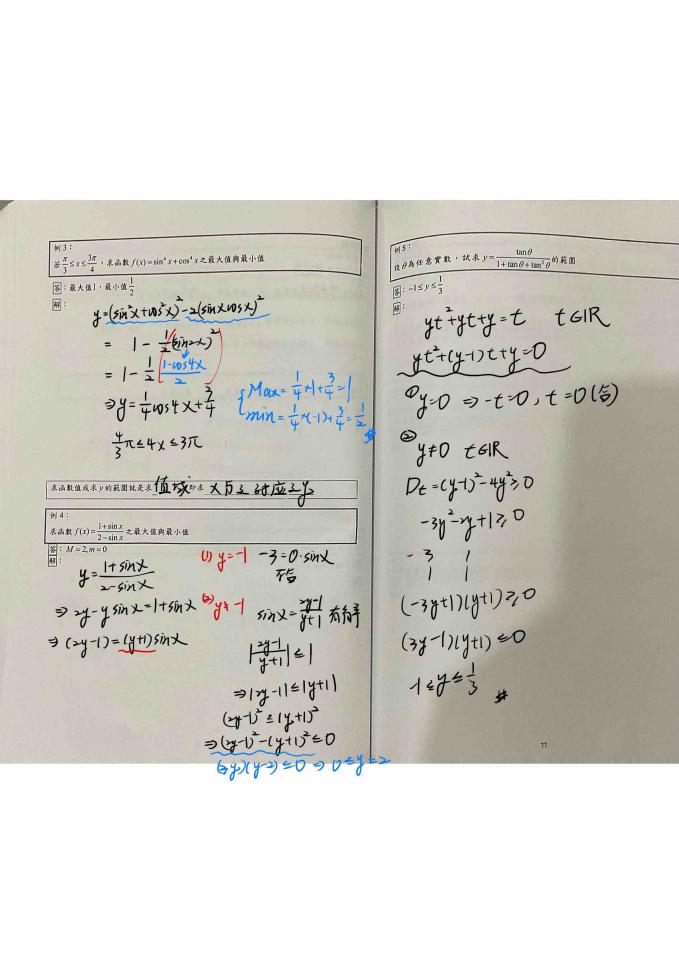 例 3：
若 π/3 ≤ x ≤ 3π/4，求函數 f(x) = sin⁴ x + cos⁴ x 之最大值與最小值
答：最大值1，最小值 1/2
解：
y = (sin²x + cos²x)² - 2(sinx cosx)²
= 1 - 1/2 (sin2x)²
= 1 - 1/2 (1-cos4x / 2)
⇒ y = 1/4 cos4x + 3/4
{ Max = 1/4 × 1 + 3/4 = 1
min = 1/4 × (-1) + 3/4 = 1/2 #
4/3 π ≤ 4x ≤ 3π
求函數值或求 y 的範圍就是求 值域 即求 之 y
例 4：
求函數 f(x) = 1+sin x / 2−sin x 之最大值與最小值
答：M = 2, m = 0
解：
y = 1+sinx / 2-sinx
⇒ 2y - y sinx = 1 + sinx
⇒ (2y-1) = (y+1) sinx
(1) y = -1 -3 = 0·sinx
不合
(2) y ≠ -1 sinx = 2y-1 / y+1 有解
|2y-1 / y+1| ≤ 1
⇒ |2y-1| ≤ |y+1|
(2y-1)² ≤ (y+1)²
⇒ (2y-1)² - (y+1)² ≤ 0
(3y)(y-2) ≤ 0 ⇒ 0 ≤ y ≤ 2
例 5：
設 θ 為任意實數，試求 y = tan θ / 1 + tan θ + tan² θ 的範圍
答：-1 ≤ y ≤ 1/3
解：
yt² + yt + y = t t∈IR
yt² + (y-1)t + y = 0
① y=0 ⇒ -t=0, t=0 (合)
②
y≠0 t∈IR
Dt = (y-1)² - 4y² ≥ 0
-3y² - 2y + 1 ≥ 0
- 3 1
1 1
(-3y+1)(y+1) ≥ 0
(3y-1)(y+1) ≤ 0
-1 ≤ y ≤ 1/3 #
77